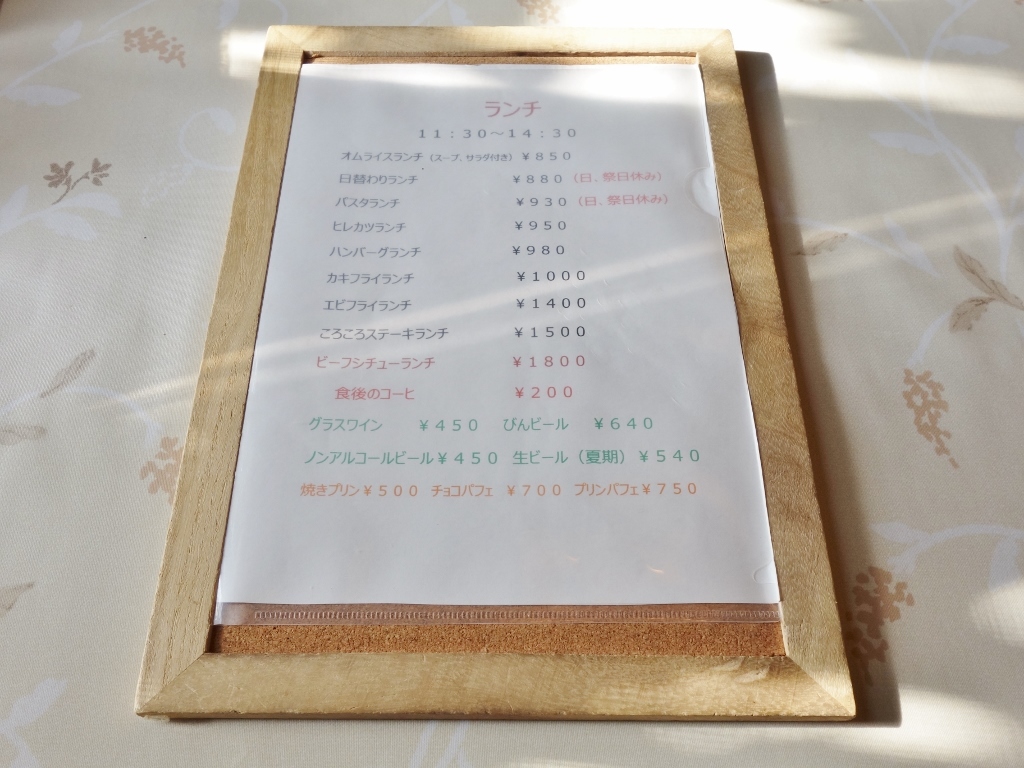 ランチ
11:30～14:30
オムライスランチ（スープ、サラダ付き）￥850
日替わりランチ ￥880（日、祭日休み）
パスタランチ ￥930（日、祭日休み）
ヒレカツランチ ￥950
ハンバーグランチ ￥980
カキフライランチ ￥1000
エビフライランチ ￥1400
ころころステーキランチ ￥1500
ビーフシチューランチ ￥1800
食後のコーヒ ￥200
グラスワイン ￥450 びんビール ￥640
ノンアルコールビール￥450 生ビール（夏期）￥540
焼きプリン￥500 チョコパフェ ￥700 プリンパフェ￥750